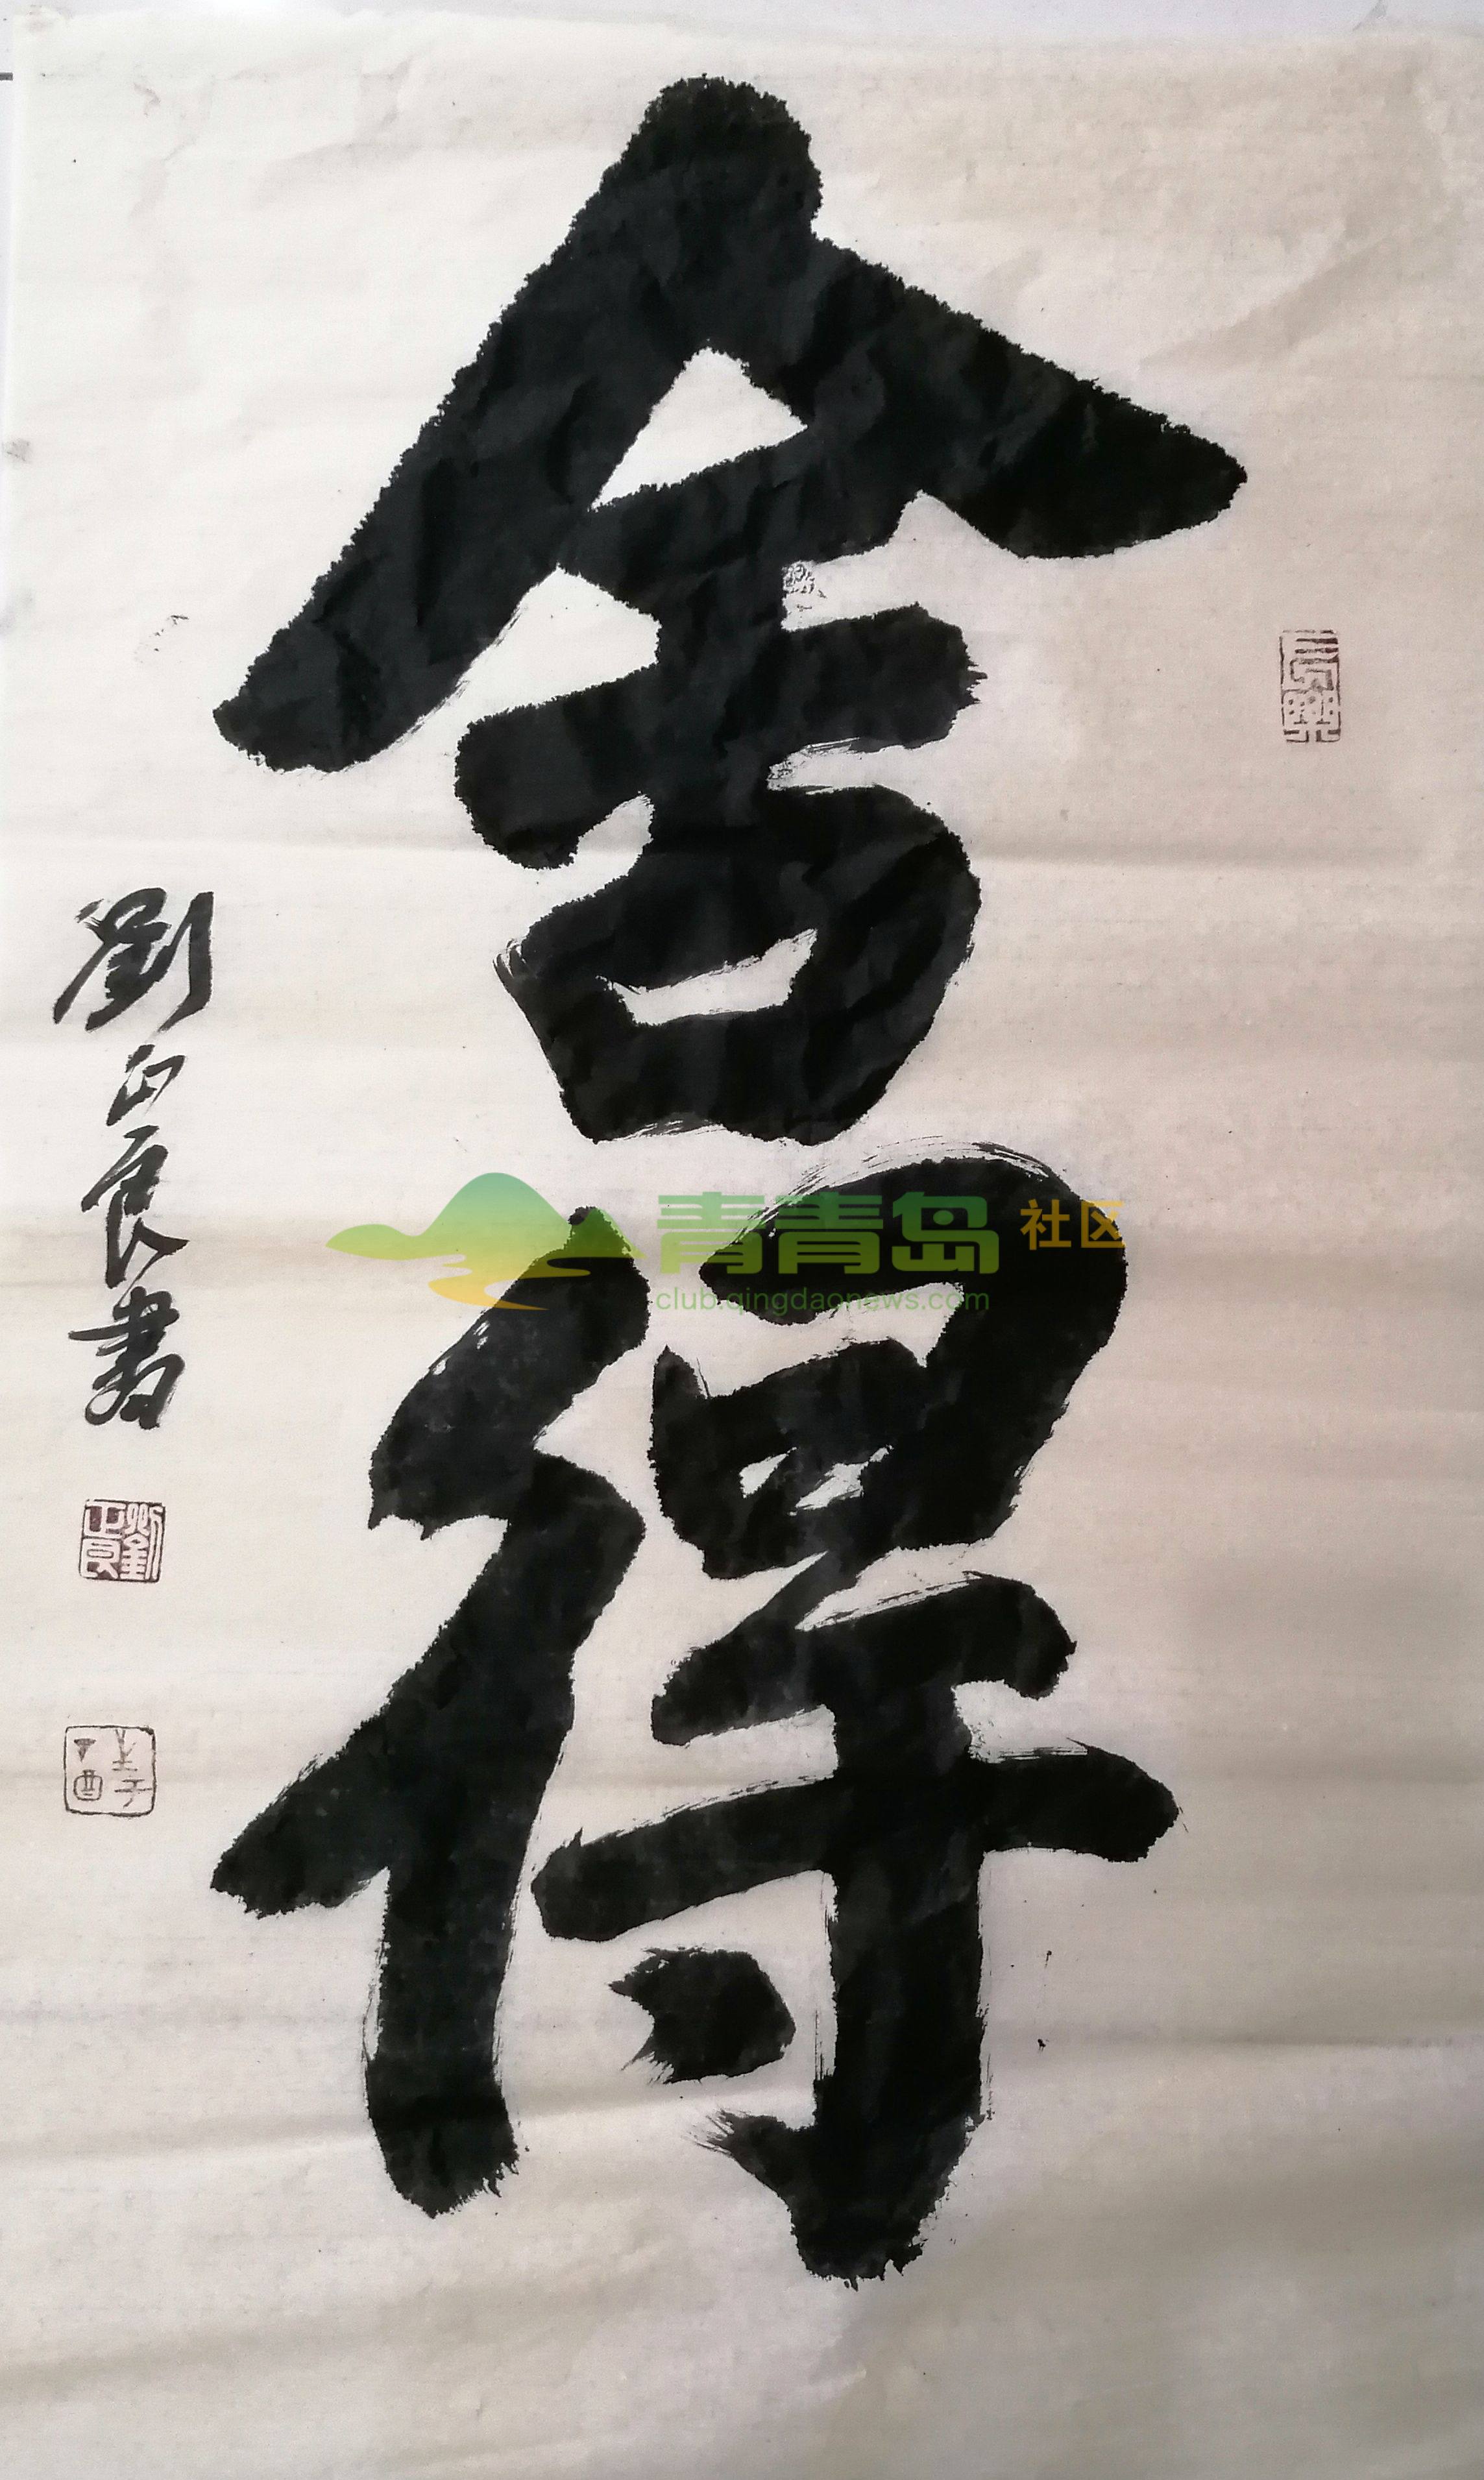 舍得
劉正良書
劉正良
青青岛 社区
club.qingdaonews.com